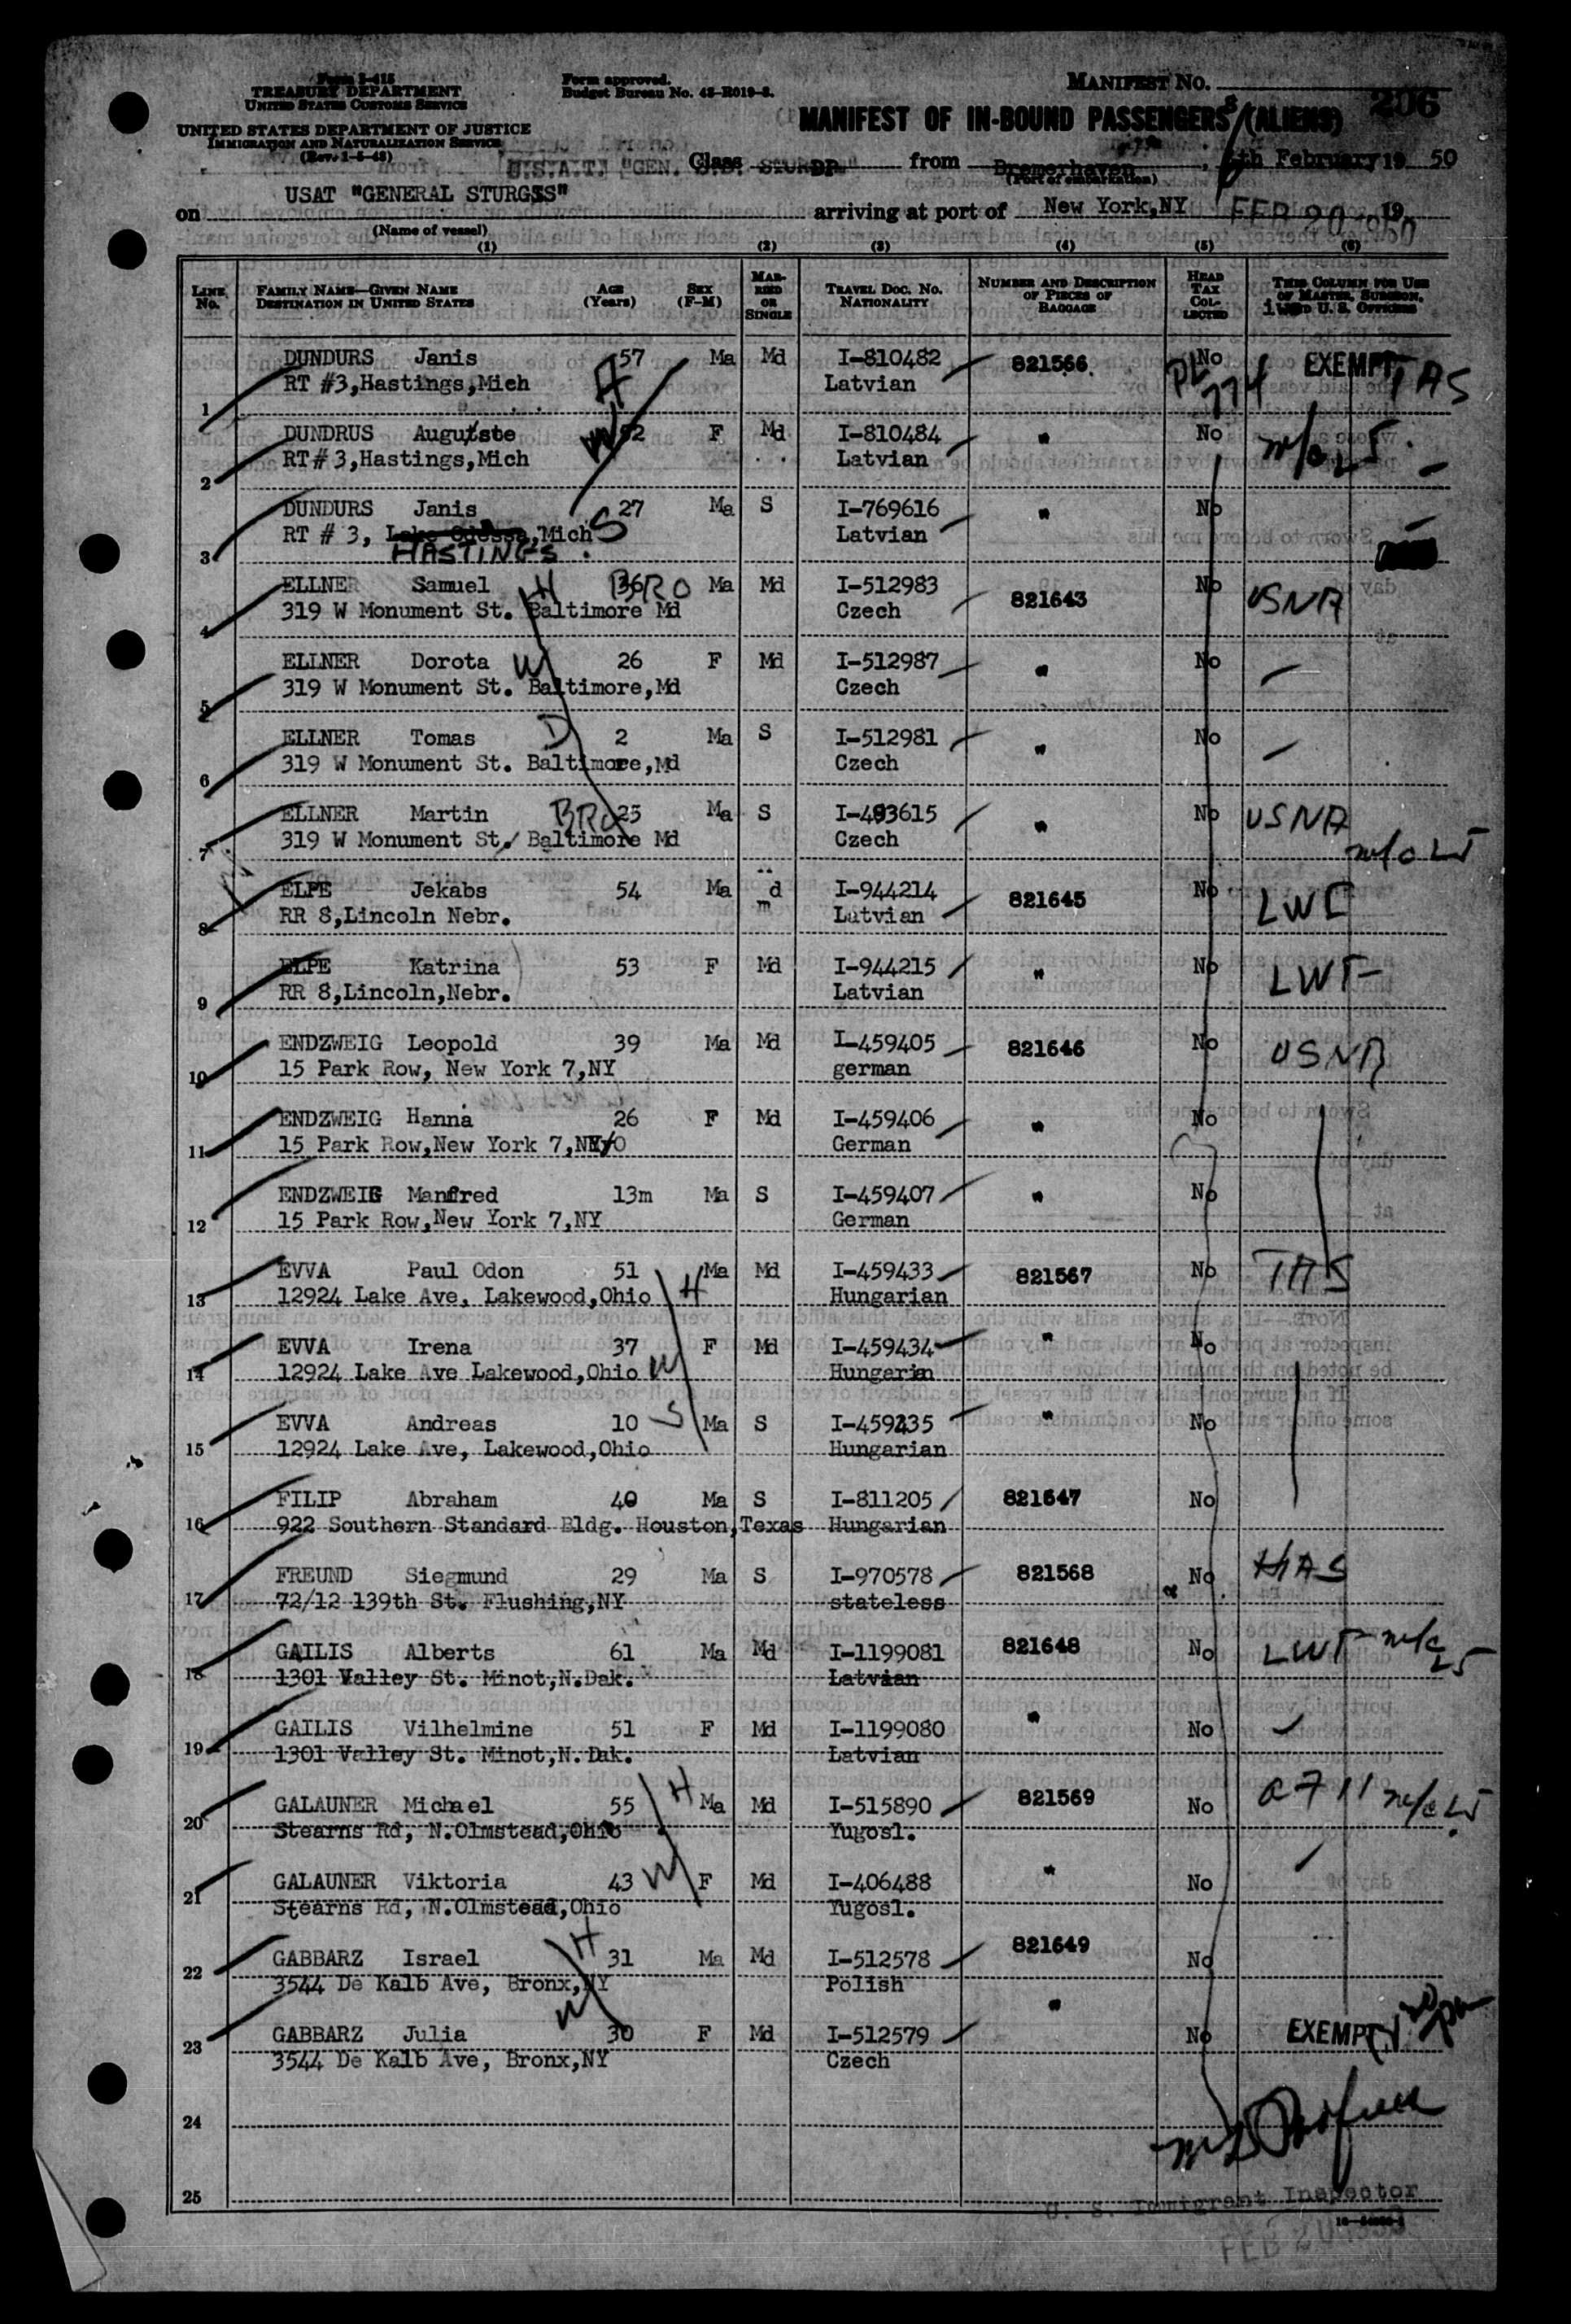 Form I-415
TREASURY DEPARTMENT
UNITED STATES CUSTOMS SERVICE
UNITED STATES DEPARTMENT OF JUSTICE
IMMIGRATION AND NATURALIZATION SERVICE
(Rev. 1-5-48)
Form approved.
Budget Bureau No. 43-R019-3.
MANIFEST NO.
206
MANIFEST OF IN-BOUND PASSENGERS (ALIENS)
Class DP from Bremerhaven, 8th February 19 50
(Port of embarkation)
on USAT "GENERAL STURGIS" arriving at port of New York,NY FEB 20 1950 19
(Name of vessel)
(1) (2) (3) (4) (5) (6)
LINE No. FAMILY NAME—GIVEN NAME DESTINATION IN UNITED STATES AGE (Years) SEX (F-M) MARRIED OR SINGLE TRAVEL DOC. NO. NATIONALITY NUMBER AND DESCRIPTION OF PIECES OF BAGGAGE HEAD TAX COLLECTED THIS COLUMN FOR USE OF MASTER, SURGEON, AND U. S. OFFICERS
DUNDURS Janis 57 Ma Md I-810482 821566 No EXEMPT TAS
1 RT #3,Hastings,Mich H Latvian PL 774
DUNDRUS Auguste W 52 F Md I-810484 " No
2 RT# 3,Hastings,Mich Latvian
DUNDURS Janis 27 Ma S I-769616 " No
3 RT # 3, Lake Odessa,Mich S Latvian
HASTINGS
ELLNER Samuel H 36 BRO Ma Md I-512983 821643 No USNA
4 319 W Monument St. Baltimore Md Czech
ELLNER Dorota W 26 F Md I-512987 " No
5 319 W Monument St. Baltimore,Md Czech
ELLNER Tomas D 2 Ma S I-512981 " No
6 319 W Monument St. Baltimore,Md Czech
ELLNER Martin BRO 25 Ma S I-493615 " No USNA
7 319 W Monument St. Baltimore Md Czech
ELPE Jekabs 54 Ma d m I-944214 821645 No LWF
8 RR 8,Lincoln Nebr. Latvian
ELPE Katrina 53 F Md I-944215 " No LWF
9 RR 8,Lincoln,Nebr. Latvian
ENDZWEIG Leopold 39 Ma Md I-459405 821646 No USNA
10 15 Park Row, New York 7,NY german
ENDZWEIG Hanna 26 F Md I-459406 " No
11 15 Park Row,New York 7,NY German
ENDZWEIG Manfred 13m Ma S I-459407 " No
12 15 Park Row,New York 7,NY German
EVVA Paul Odon 51 Ma Md I-459433 821567 No TAS
13 12924 Lake Ave, Lakewood,Ohio H Hungarian
EVVA Irena 37 F Md I-459434 " No
14 12924 Lake Ave Lakewood,Ohio W Hungarian
EVVA Andreas 10 S Ma S I-459435 " No
15 12924 Lake Ave, Lakewood,Ohio Hungarian
FILIP Abraham 40 Ma S I-811205 821647 No
16 922 Southern Standard Bldg. Houston,Texas Hungarian
FREUND Siegmund 29 Ma S I-970578 821568 No HIAS
17 72/12 139th St. Flushing,NY stateless
GAILIS Alberts 61 Ma Md I-1199081 821648 No LWF
18 1301 Valley St. Minot,N.Dak. Latvian
GAILIS Vilhelmine 51 F Md I-1199080 " No
19 1301 Valley St. Minot,N.Dak. Latvian
GALAUNER Michael 55 H Ma Md I-515890 821569 No
20 Stearns Rd, N.Olmstead,Ohio Yugosl.
GALAUNER Viktoria 43 W F Md I-406488 " No
21 Stearns Rd, N.Olmstead,Ohio Yugosl.
GABBARZ Israel H 31 Ma Md I-512578 821649 No
22 3544 De Kalb Ave, Bronx,NY Polish
GABBARZ Julia W 30 F Md I-512579 " No EXEMPT
23 3544 De Kalb Ave, Bronx,NY Czech
24
25
U. S. Immigrant Inspector